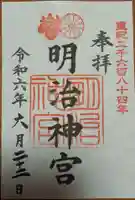 皇紀二千六百八十四年
奉拝
明治神宮
令和六年六月二十二日